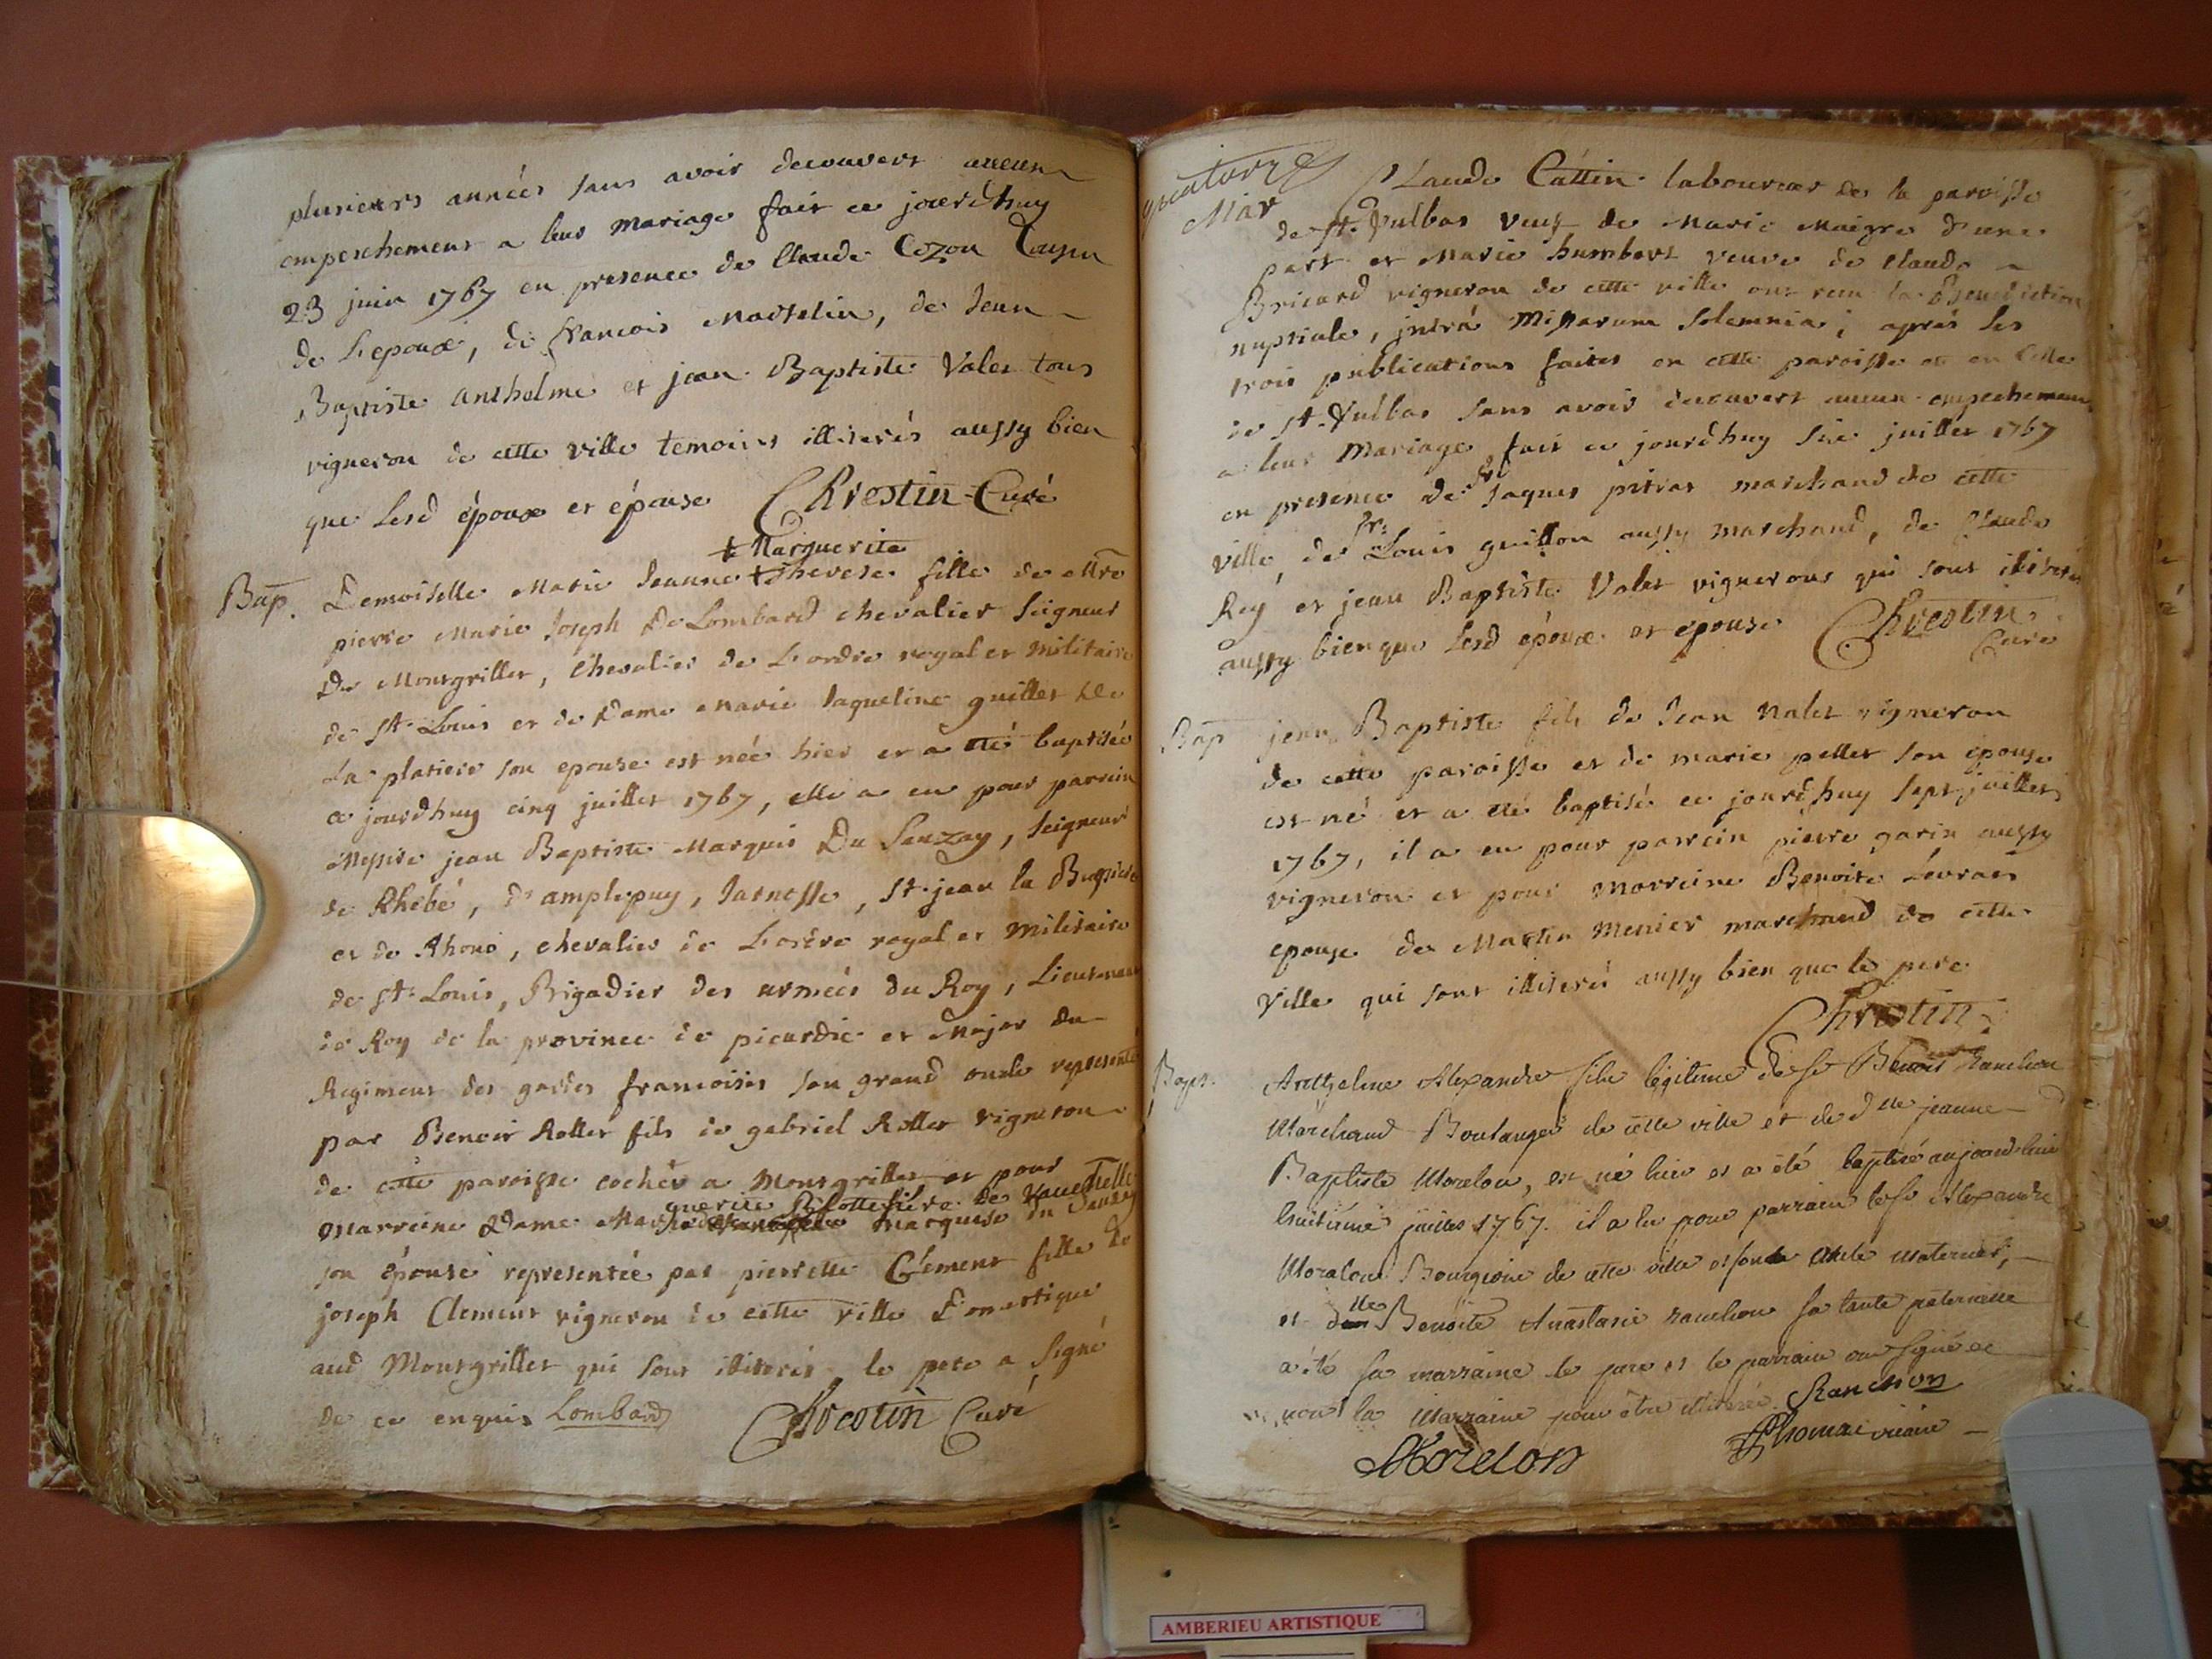 plusieurs années sans avoir decouvert aucun
empeschement a leur mariage fait ce jourdhuy
23 juin 1767 en presence de Claude Cozon Cousin
de L'epoux, de francois Martelin, de Jean
Baptiste anthelme et jean Baptiste Valet tous
vigneron de cette ville temoins illiterés aussy bien
que Lesd époux et épouse Chrestin Curé
+ Marguerite
Bap. Demoiselle Marie Jeanne + Therese fille de Mre
pierre Marie Joseph De Lombard chevalier Seigneur
De Montgrillet, Chevalier de L'ordre royal et militaire
de St. Louis et de Dame Marie Jaqueline guillet De
La platiere son epouse est née hier et a eté baptisée
ce jourdhuy cinq juillet 1767, elle a eu pour parrein
Messire jean Baptiste Marquis Du Sauzay, Seigneur
de Rhébé, d'amplepuy, Jarnosse, St. jean la Bussiere
et de Rhone, chevalier de L'ordre royal et militaire
de St. Louis, Brigadier des armées du Roy, Lieutenant
de Roy de la province de picardie et Major du
Regiment des gardes francoises son grand oncle representé
par Benoit Rollet fils de gabriel Rollet vigneron
de cette paroisse cocher a Montgrillet et pour
marreine Dame Marguerite de marquise Du Sauzay
son épouse representée par pierrette Clément fille de
joseph Clement vigneron de cette ville Domestique
aud Montgrillet qui sont illiterés, le pere a signé
de ce enquis Lombard Chrestin Curé
quatorze
Mar Claude Cattin laboureur de la paroisse
de St. Vulbas veuf de Marie Maigre d'une
part et Marie humbert veuve de Claude
Bricard vigneron de cette ville ont recu la Benediction
nuptiale, intrá Missarum Solemnia; aprés les
trois publications faites en cette paroisse et en celle
de St. Vulbas sans avoir decouvert aucun empechement
a leur Mariage fait ce jourdhuy six juillet 1767
en presence de Sr Jaques pitras marchand de cette
ville, de Sr. Louis guillon aussy marchand, de Claude
Rey et jean Baptiste Valet vignerons qui sont illiterés
aussy bien que Lesd époux et epouse Chrestin
Curé
Bap jean Baptiste fils de Jean Valet vigneron
de cette paroisse et de marie pellet son epouse
est né et a eté baptisé ce jourdhuy sept juillet
1767, il a eu pour parrein pierre garin aussy
vigneron et pour marreine Benoite Levrat
epouse de Martin Menier marchand de cette
ville qui sont illiterés aussy bien que le pere
Chrestin
Bapt. Anthelme Alexandre fils légitime de Sr Benoit Ranchon
Marchand Boulanger de cette ville et de dlle jeanne
Baptiste Morelon, est né hier et a été baptisé aujourd'hui
huitième juillet 1767. il a eu pour parrain le Sr Alexandre
Morelon Bourgeois de cette ville et son oncle maternel,
et dlle Benoite Anastasie ranchon sa tante paternelle
a été sa marraine le pere et le parrain ont signé et
non la Marraine pour être illiterée. Ranchon
Morelon Thomas vicaire
AMBERIEU ARTISTIQUE